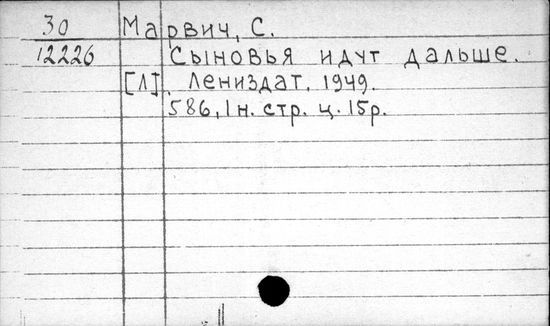 30 Марвич, С.
12226 Сыновья идут дальше.
[Л]. Лениздат. 1949.
586, 1 н. стр. ц. 15 р.